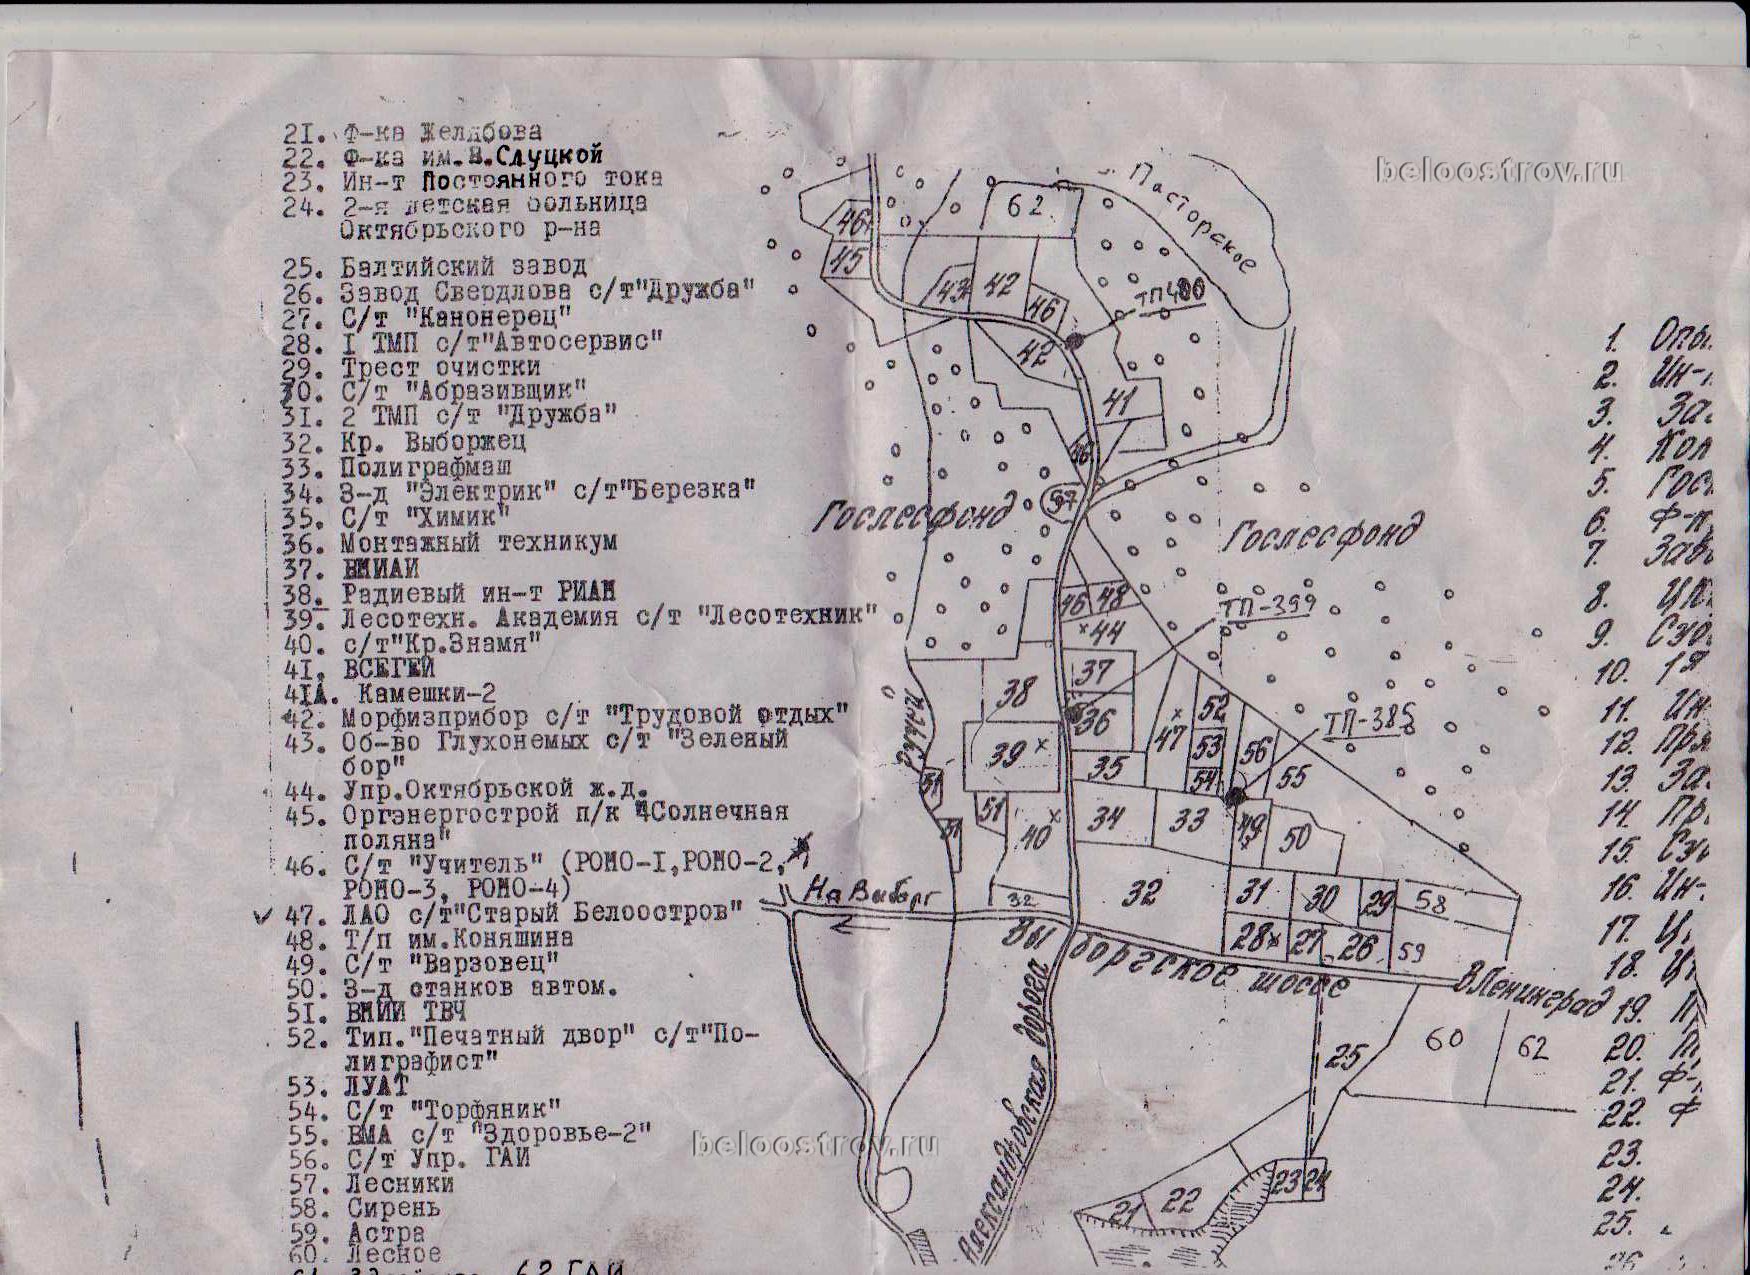 21. Ф-ка Желябова
22. Ф-ка им.В.Слуцкой
23. Ин-т Постоянного тока
24. 2-я детская больница
Октябрьского р-на
25. Балтийский завод
26. Завод Свердлова с/т"Дружба"
27. С/т "Канонерец"
28. I ТМП с/т"Автосервис"
29. Трест очистки
30. С/т "Абразивщик"
31. 2 ТМП с/т "Дружба"
32. Кр. Выборжец
33. Полиграфмаш
34. З-д "Электрик" с/т"Березка"
35. С/т "Химик"
36. Монтажный техникум
37. ВМИАИ
38. Радиевый ин-т РИАН
39. Лесотехн. Академия с/т "Лесотехник"
40. с/т"Кр.Знамя"
41. ВСЕГЕИ
41А. Камешки-2
42. Морфизприбор с/т "Трудовой отдых"
43. Об-во Глухонемых с/т "Зеленый
бор"
44. Упр.Октябрьской ж.д.
45. Оргэнергострой п/к "Солнечная
поляна"
46. С/т "Учитель" (РОНО-I,РОНО-2,
РОНО-3, РОНО-4)
47. ЛАО с/т"Старый Белоостров"
48. Т/п им.Коняшина
49. С/т "Варзовец"
50. З-д станков автом.
51. ВНИИ ТВЧ
52. Тип."Печатный двор" с/т"По-
лиграфист"
53. ЛУАТ
54. С/т "Торфяник"
55. ВМА с/т "Здоровье-2"
56. С/т Упр. ГАИ
57. Лесники
58. Сирень
59. Астра
60. Лесное
62 ГАИ
beloostrov.ru
Пасторское
62
46
45
43 42
46
ТП400
42
41
46
97
Гослесфонд
Гослесфонд
46 48
ТП-399
×44
37
38
36
52
ТП-385
47
53
56
39 ×
35
54
55
51
51
34
33
49
50
40 ×
51
На Выборг
32
32
31
30
29
58
28×
27
26
59
Выборгское шоссе
В Ленинград
Александровская дорога
25
60
62
23 24
22
21
beloostrov.ru
1. Опы
2. Ин-
3. За
4. Кол
5. Гос
6. Ф-
7. Зав
8.
9.
10. 1я
11. Ин
12. Пря
13. За
14. Пр
15.
16. Ин-
17. Ц
18. Ц
19. П
20.
21. Ф-
22. Ф
23.
24.
25.
26